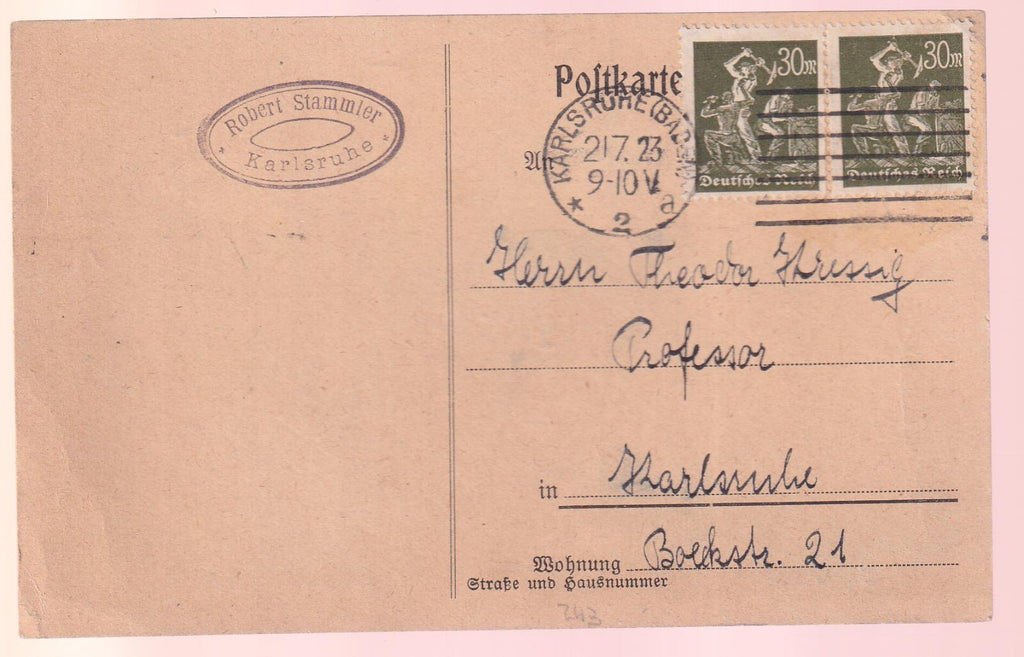 Robert Stammler
Karlsruhe
Postkarte
30M
30M
Deutsches Reich
Deutsches Reich
KARLSRUHE (BADEN)
21.7.23
9-10 V.
* 2 a
An
Herrn Theodor Kressig
Professor
in Karlsruhe
Wohnung Boeckstr. 21
Straße und Hausnummer
243